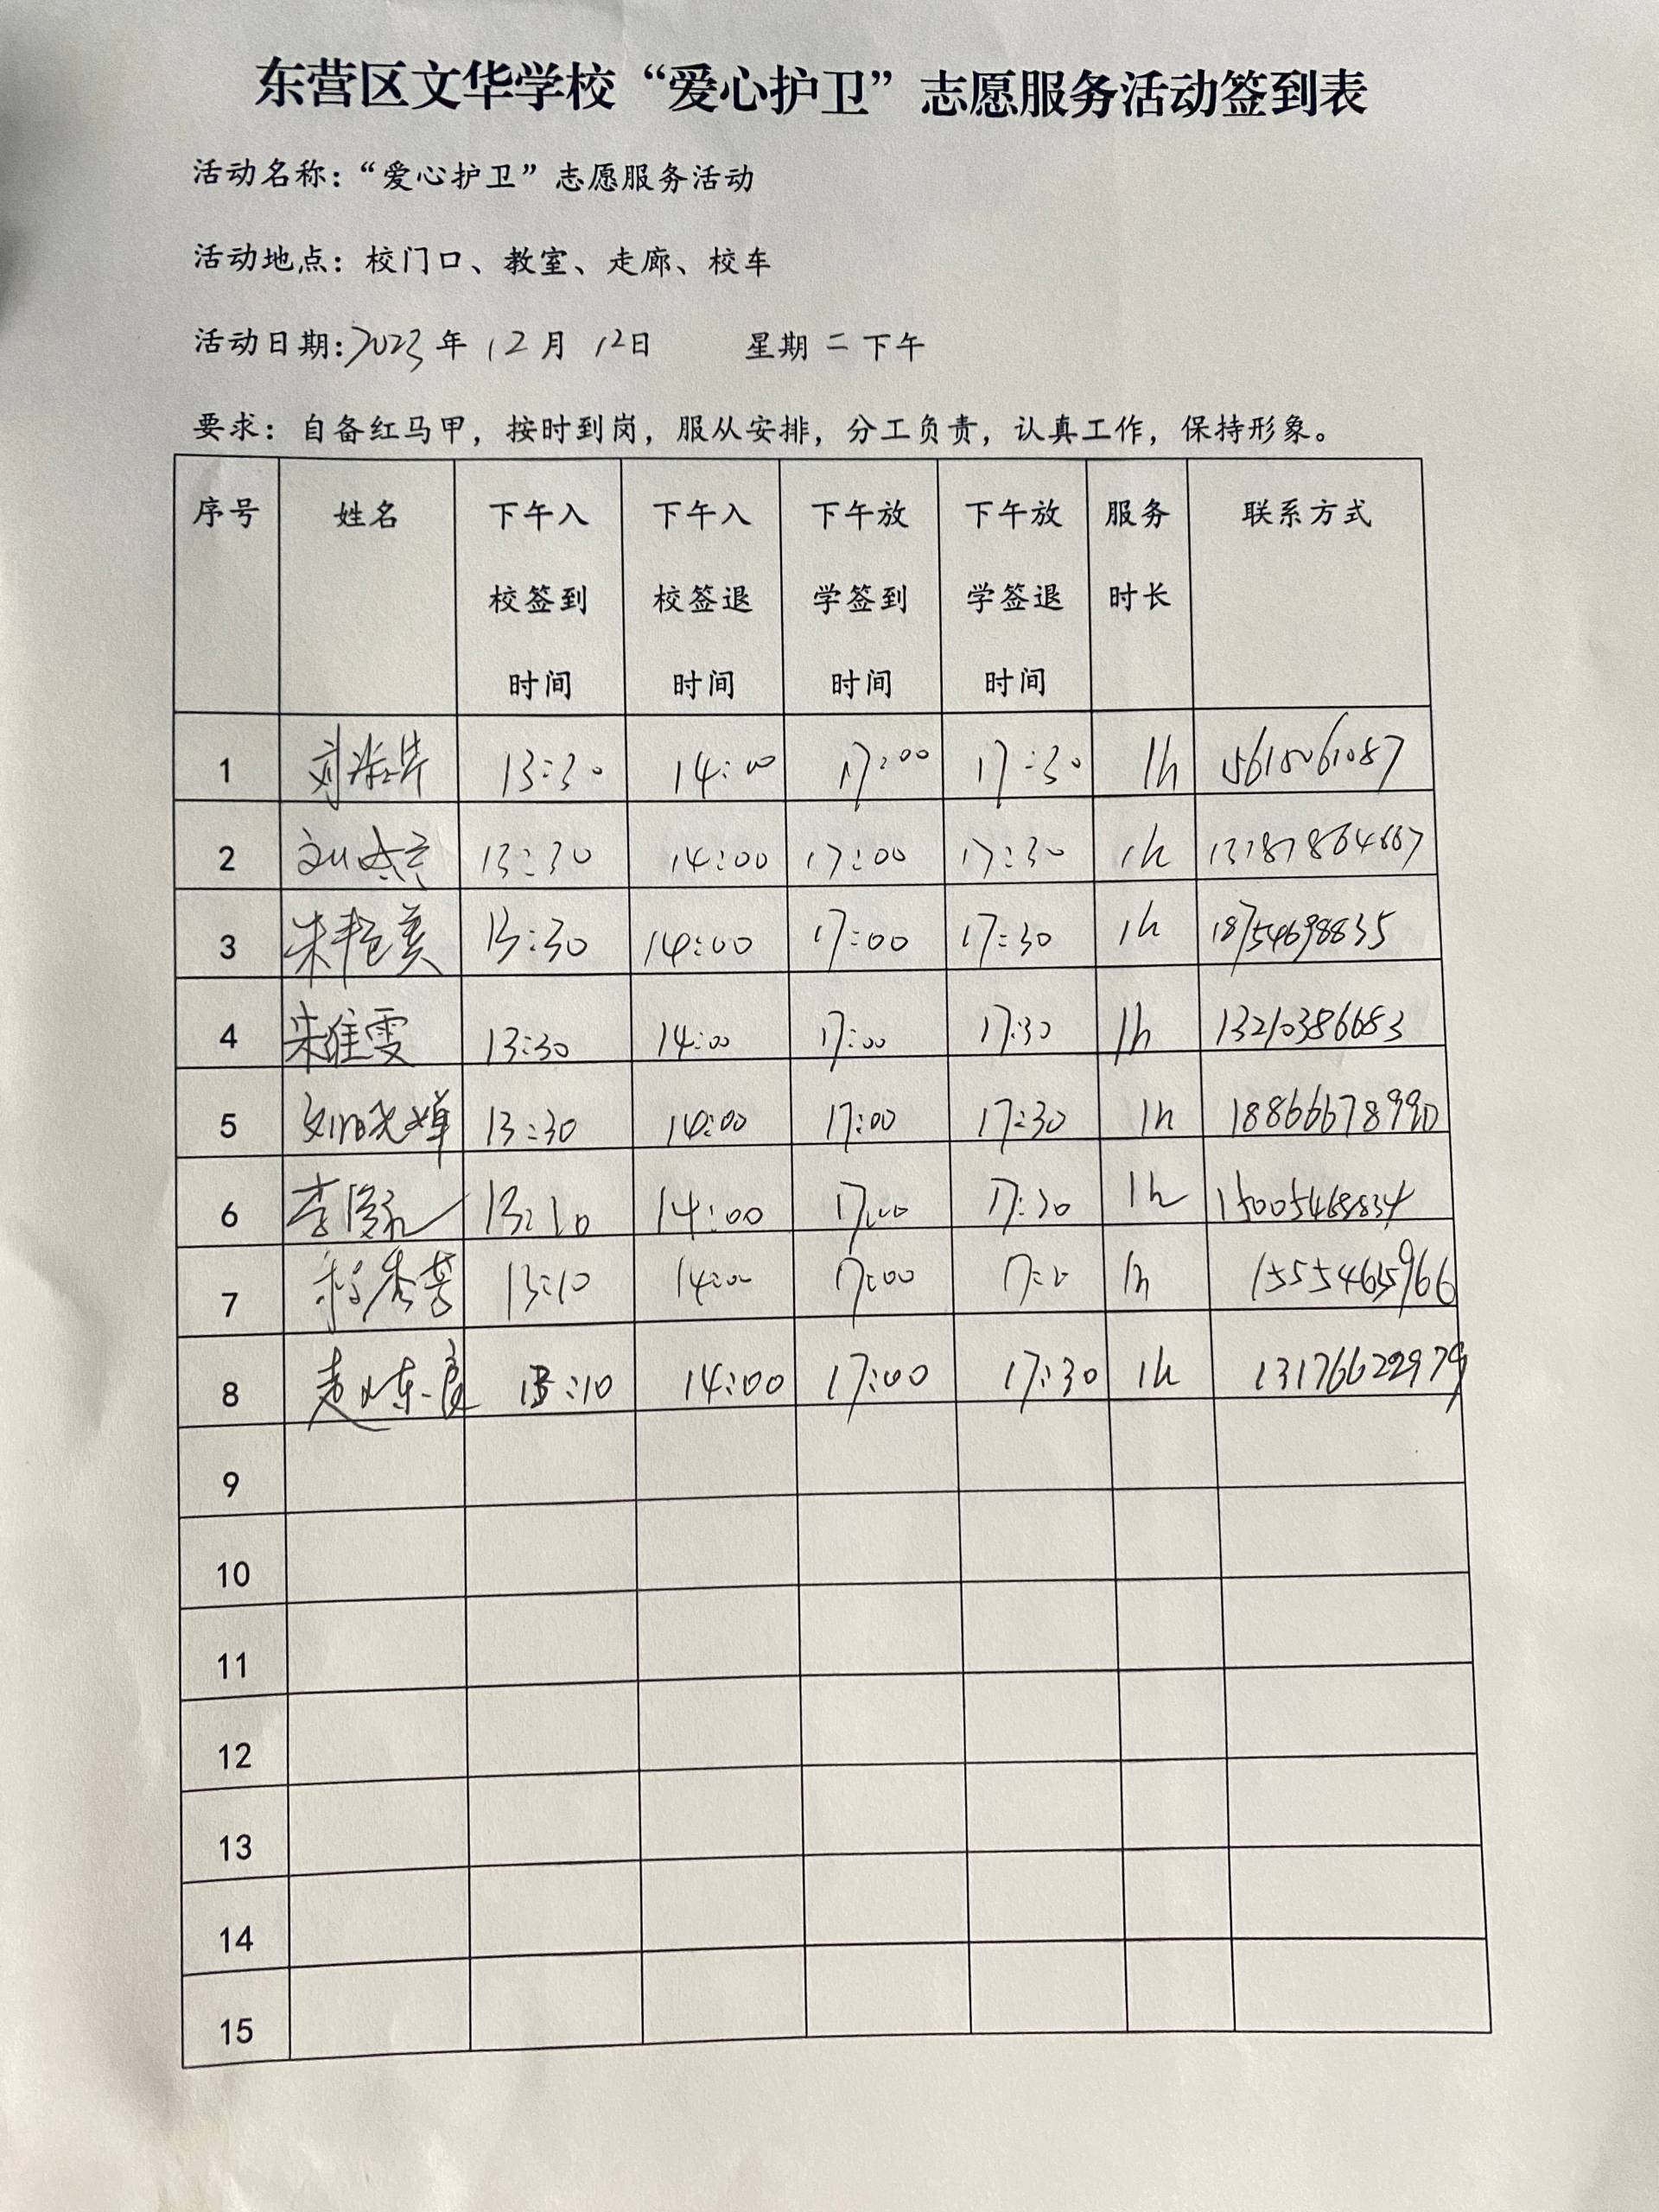 东营区文华学校“爱心护卫”志愿服务活动签到表
活动名称：“爱心护卫”志愿服务活动
活动地点：校门口、教室、走廊、校车
活动日期：2023年 12月 12日 星期二下午
要求：自备红马甲，按时到岗，服从安排，分工负责，认真工作，保持形象。
序号 姓名 下午入校签到时间 下午入校签退时间 下午放学签到时间 下午放学签退时间 服务时长 联系方式
1 13:30 14:00 17:00 17:30 1h 15615061087
2 13:30 14:00 17:00 17:30 1h
3 朱艳美 13:30 14:00 17:00 17:30 1h 18754698835
4 朱维雯 13:30 14:00 17:00 17:30 1h 13210386683
5 刘晓婵 13:30 14:00 17:00 17:30 1h 18866678990
6 14:00 17:00 17:30 1h
7 13:10 14:00 17:00 1h
8 13:10 14:00 17:00 17:30 1h 13176622979
9
10
11
12
13
14
15